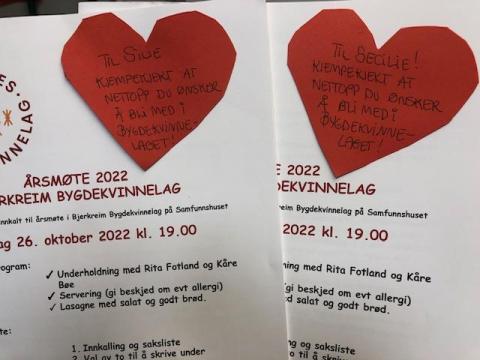 TIL SILJE
KJEMPEKJEKT AT
NETTOPP DU ØNSKER
Å BLI MED I
BYGDEKVINNE-
LAGET!
ÅRSMØTE 2022
JERKREIM BYGDEKVINNELAG
innkalt til årsmøte i Bjerkreim Bygdekvinnelag på Samfunnshuset
ag 26. oktober 2022 kl. 19.00
rogram:
✓ Underholdning med Rita Fotland og Kåre
Bøe
✓ Servering (gi beskjed om evt allergi)
✓ Lasagne med salat og godt brød.
te:
1. Innkalling og saksliste
2. Val av to til å skrive under
TIL CECILIE!
KJEMPEKJEKT AT
NETTOPP DU ØNSKER
Å BLI MED I
BYGDEKVINNE-
LAGET!
TE 2022
DEKVINNELAG
kreim Bygdekvinnelag på Samfunnshuset
r 2022 kl. 19.00
ning med Rita Fotland og Kåre
(gi beskjed om evt allergi)
ed salat og godt brød.
ng og saksliste
to til å skrive under